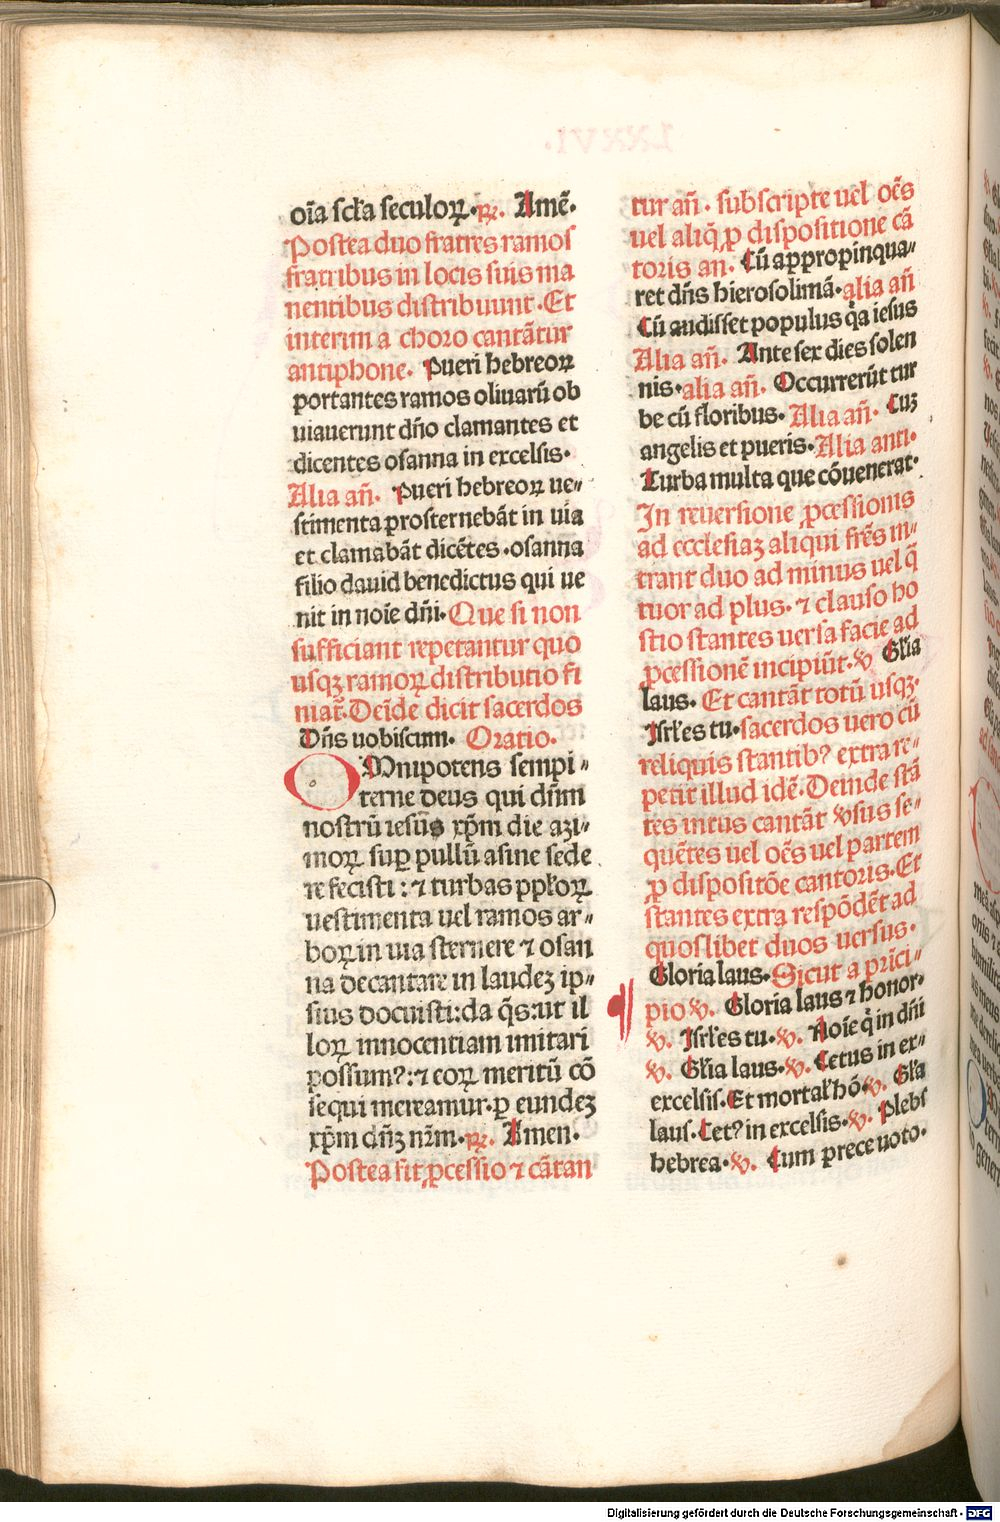 oı̄a scł̄a seculoꝝ. ꝶ. Amē.
Postea duo fratres ramos
fratribus in locis suis ma
nentibus distribuunt. Et
interim a choro cantātur
antiphone. Pueri hebreoꝝ
portantes ramos oliuarū ob
uiauerunt dn̄o clamantes et
dicentes osanna in excelsis.
Alia an̄. Pueri hebreoꝝ ue⸗
stimenta prosternebāt in uia
et clamabāt dicētes. osanna
filio dauid benedictus qui ue
nit in noīe dn̄i. Que si non
sufficiant repetantur quo
usqꝫ ramoꝝ distributio fi
niat᷑. Deīde dicit sacerdos
Dn̄s uobiscum. Oratio.
OMnipotens sempi⸗
terne deus qui dn̄m
nostrū iesūs xp̄m die azi⸗
moꝝ sup̄ pullū asine sede
re fecisti: ⁊ turbas pplōꝝ
uestimenta uel ramos ar⸗
boꝝ in uia sternere ⁊ osan
na decantare in laudeꝫ ip⸗
sius docuisti: da q̄s: ut il
loꝝ innocentiam imitari
possumꝰ: ⁊ eoꝝ meritū cō
sequi mereamur. ꝑ eundeꝫ
xp̄m dn̄ꝫ nr̄m. ꝶ. Amen.
Postea fit ꝓcessio ⁊ cātan
tur an̄. subscripte uel oēs
uel aliq̄ ꝓ dispositione cā
toris an. Cū appropinqua⸗
ret dn̄s hierosolimā. alia an̄
Cū audisset populus q̄a iesus
Alia an̄. Ante sex dies solen
nis. alia an̄. Occurrerūt tur
be cū floribus. Alia an̄. Cuꝫ
angelis et pueris. Alia anti.
Turba multa que cōuenerat.
In reuersione ꝓcessionis
ad ecclesiaꝫ aliqui frēs in⸗
trant duo ad minus uel q̄
tuor ad plus. ⁊ clauso ho
stio stantes uersa facie ad
ꝓcessionē incipiūt. ℣ Gl̄ia
laus. Et cantāt totū usqꝫ.
Isrłes tu. sacerdos uero cū
reliquis stantibꝰ extra re⸗
petit illud idē. Deinde stā
tes intus cantāt ℣sus se⸗
quētes uel oēs uel partem
ꝓ dispositōe cantoris. Et
stantes extra respōdēt ad
quoslibet duos uersus.
Gloria laus. Sicut a prīci⸗
pio ℣. Gloria laus ⁊ honor.
℣. Isrłes tu. ℣. Noīe q̄ in dn̄i
℣. Gl̄ia laus. ℣. Cetus in ex⸗
excelsis. Et mortal̄ hō. ℣. Gl̄a
laus. Cetꝰ in excelsis. ℣. Plebs
hebrea. ℣. Cum prece uoto.
Digitalisierung gefördert durch die Deutsche Forschungsgemeinschaft - DFG